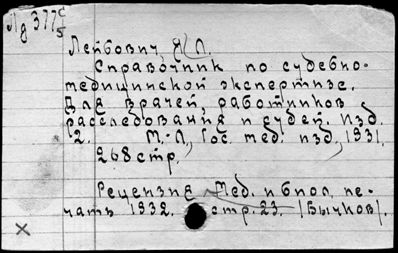 Лд 377 с/5
Лейбович, Я. Л.
Справочник по судебно-
медицинской экспертизе.
Для врачей, работников
расследования и судей. Изд.
2. М.-Л., Гос. мед. изд., 1931.
268 стр.
Рецензия Мед. и биол. пе-
чать 1932. стр. 23. (Бычков).